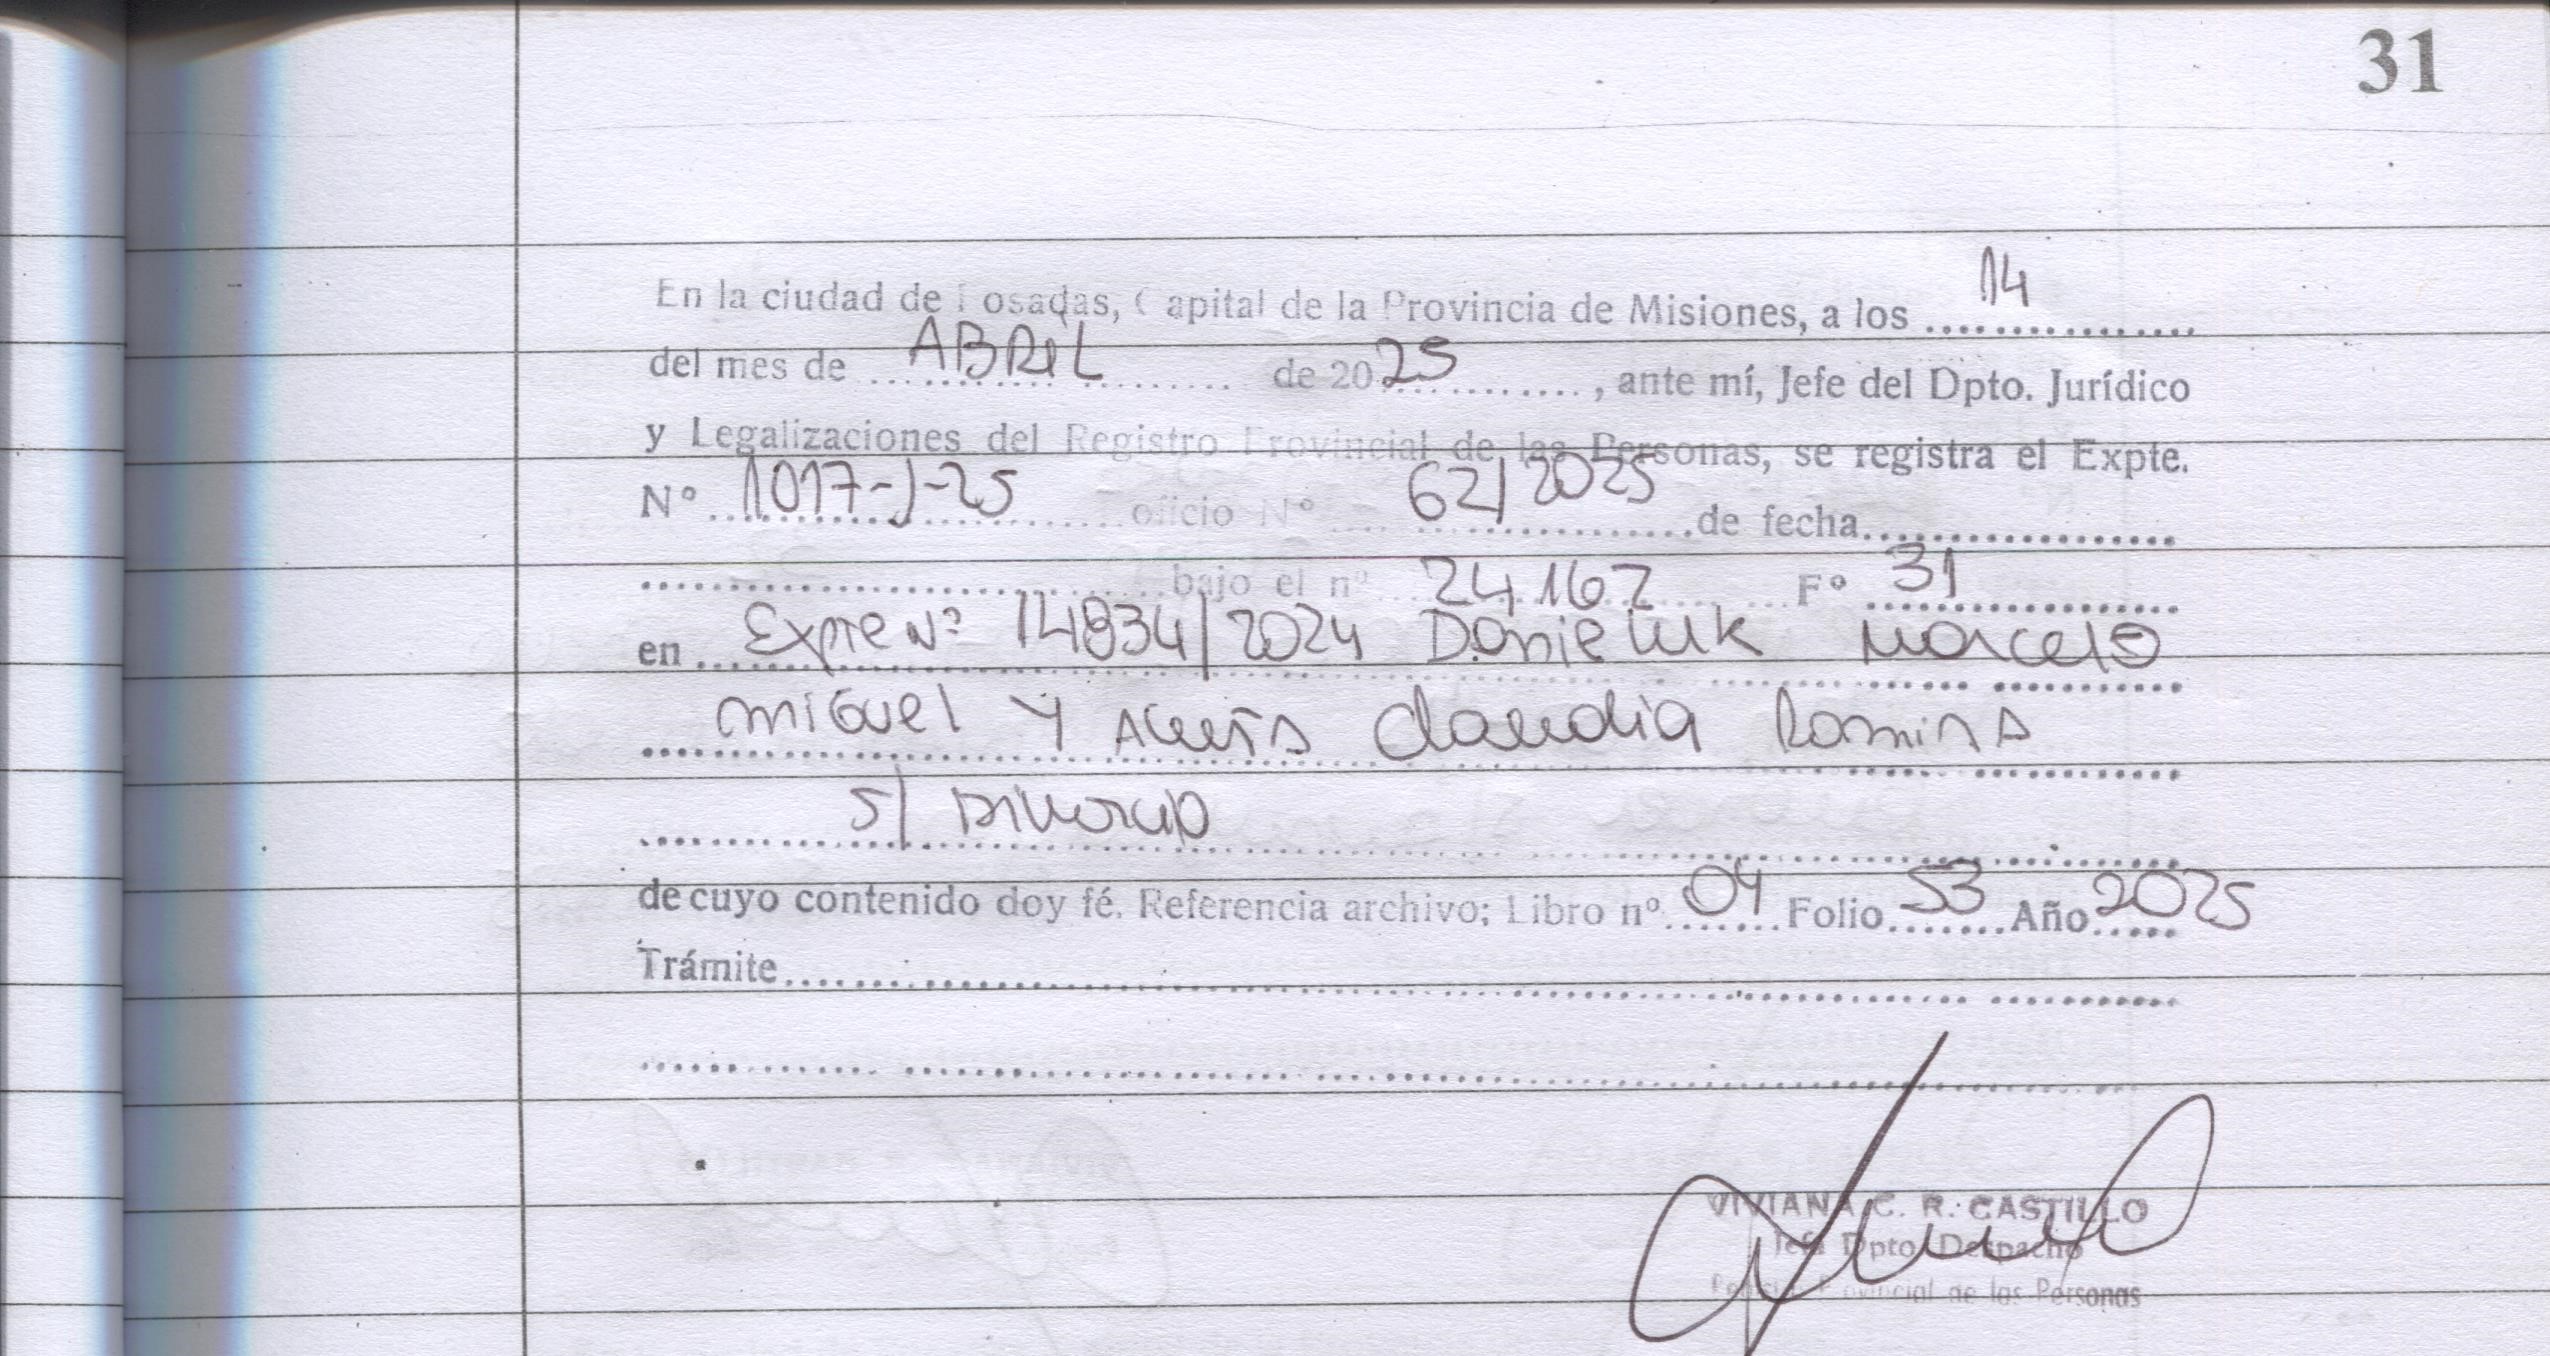 31
En la ciudad de Posadas, Capital de la Provincia de Misiones, a los 14
del mes de ABRIL de 2025, ante mí, Jefe del Dpto. Jurídico
y Legalizaciones del Registro Provincial de las Personas, se registra el Expte.
Nº 1017-J-25 oficio Nº 62/2025 de fecha
bajo el nº 24.162 Fº 31
en Expte Nº 14834/2024 Danieluk Marcelo
Miguel Y Acuña Claudia Romina
S/ Divorcio
de cuyo contenido doy fé. Referencia archivo; Libro nº 04 Folio 53 Año 2025
Trámite
VIVIANA C. R. CASTILLO
Jefa Dpto Despacho
Registro Provincial de las Personas